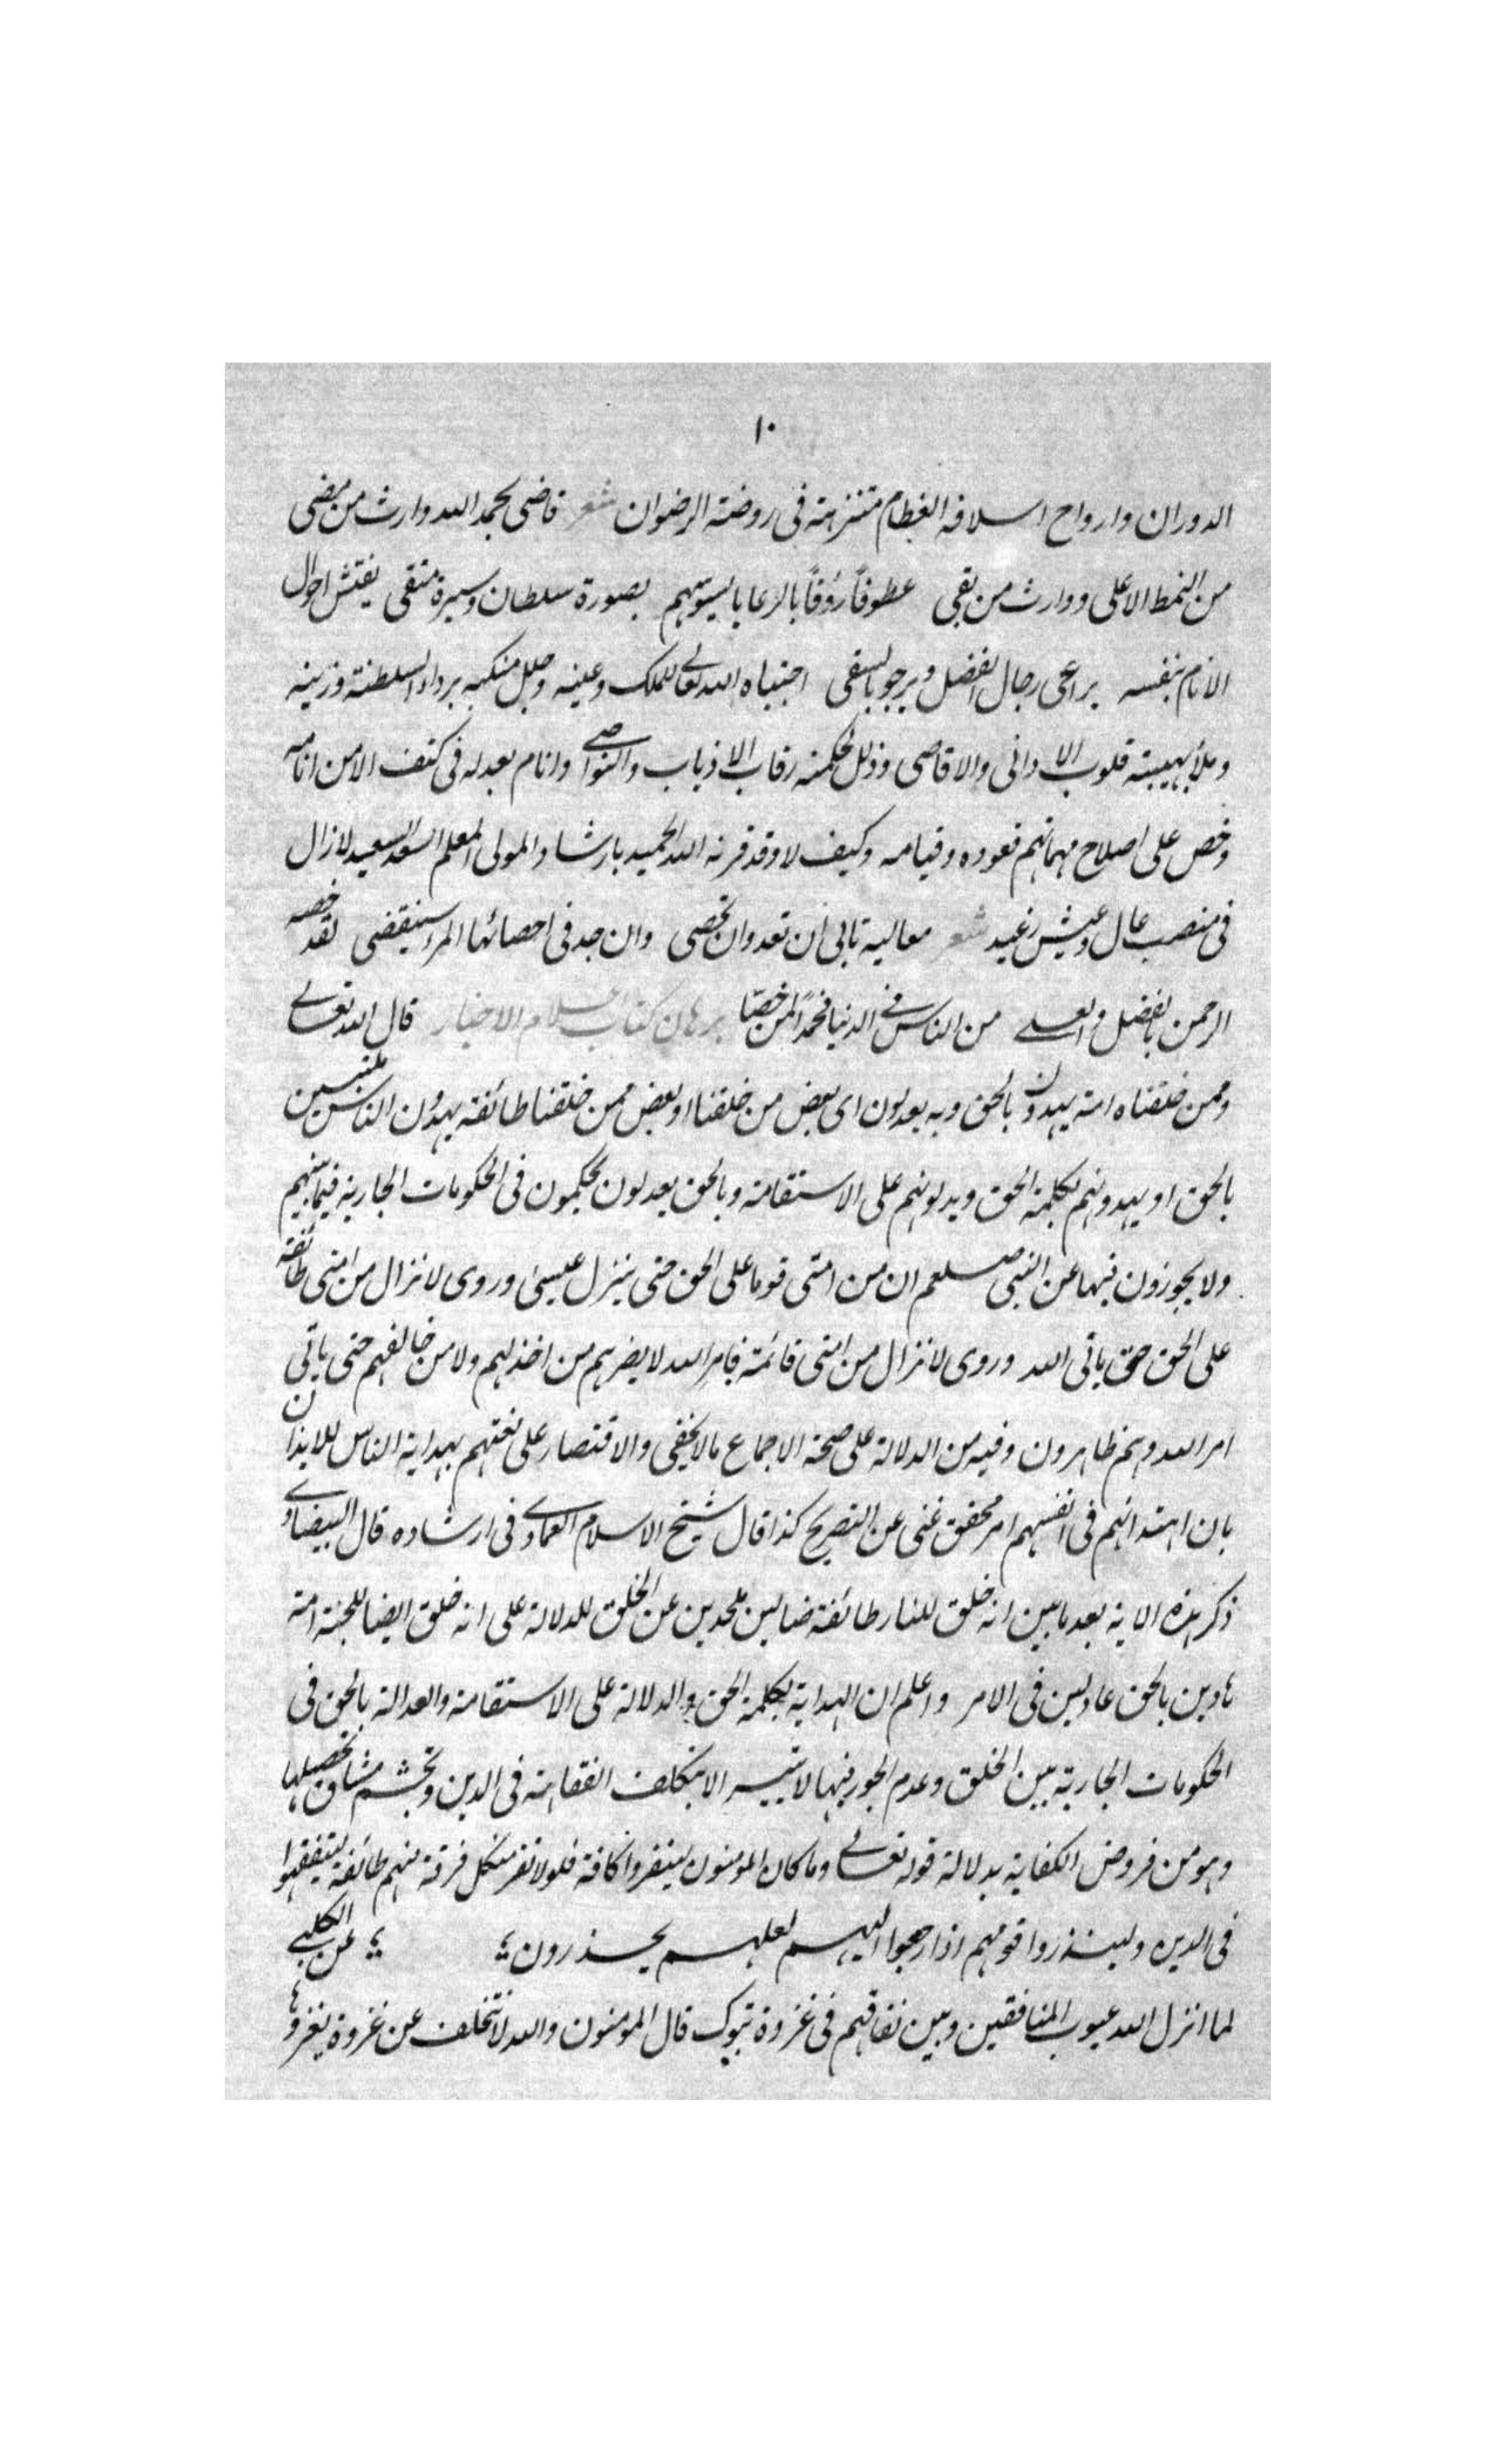 ١٠
الدوران وارواح اسلافه العظام متنزهة فى روضة الرضوان شعر قاضى بحمد الله وارث من مضى
من النمط الاعلى ووارث من بقى عطوفاً رؤفاً بالرعايا يسوسهم بصورة سلطان وسيرة متقى يفتش احوال
الانام بنفسه يراعى رجال الفضل ويرجو بالسقى اجتباه الله تعالى للملك وعينه وجلل منكبه برداء السلطنة وزينه
وملأ بهيبته قلوب الادانى والاقاصى وذلل لحكمته رقاب الاذناب والنواصى وانام بعدله فى كنف الامن انامه
وخص على اصلاح مهماتهم قعوده وقيامه وكيف لا وقد قرنه الله الحميد بارشاد المولى المعلم السعد السعيد لا زال
فى منصب عال وعيش رغيد شعر معاليه تابى ان تعد وان تحصى وان جد فى احصائها المرء سيقضى لقد خصه
الرحمن بالفضل والعلى من الناس فى الدنيا فحمداً لمن خصّا برهان كتاب اعلام الاخيار قال الله تعالى
وممن خلقناه امة يهدون بالحق وبه يعدلون اى بعض من خلقنا او بعض ممن خلقنا طائفة يهدون الناس ملتبسين
بالحق او يهدونهم بكلمة الحق ويدلونهم على الاستقامة وبالحق يعدلون يحكمون فى الحكومات الجارية فيما بينهم
ولا يجوزون فيها عن النبى صلعم ان من امتى قوما على الحق حتى ينزل عيسى وروى لا تزال من امتى طائفة
على الحق حتى ياتى الله وروى لا تزال من امتى قائمة بامر الله لا يضرهم من اخذلهم ولا من خالفهم حتى ياتى
امر الله وهم ظاهرون وفيه من الدلالة على صحة الاجماع ما لا يخفى والاقتصار على نعتهم بهداية الناس للايذان
بان اهتدائهم فى انفسهم امر محقق غنى عن التصريح كذا قال شيخ الاسلام العمادى فى ارشاده قال البيضاوى
ذكر هذه الاية بعد ما بين انه خلق للنار طائفة ضالين ملحدين عن الخلق للدلالة على انه خلق ايضا للجنة امة
هادين بالحق عادلين فى الامر واعلم ان الهداية بكلمة الحق والدلالة على الاستقامة والعدالة بالحق فى
الحكومات الجارية بين الخلق وعدم الجور فيها لا تتيسر الا بتكلف الفقاهة فى الدين وتجشم مشاق تحصيلها
وهو من فروض الكفاية بدلالة قوله تعالى وما كان المؤمنون لينفروا كافة فلولا نفر من كل فرقة منهم طائفة ليتفقهوا
فى الدين ولينذروا قومهم اذا رجعوا اليهم لعلهم يحذرون عن الكلبى
لما انزل الله عيوب المنافقين وبين نفاقهم فى غزوة تبوك قال المؤمنون والله لا نتخلف عن غزوة يغزوها